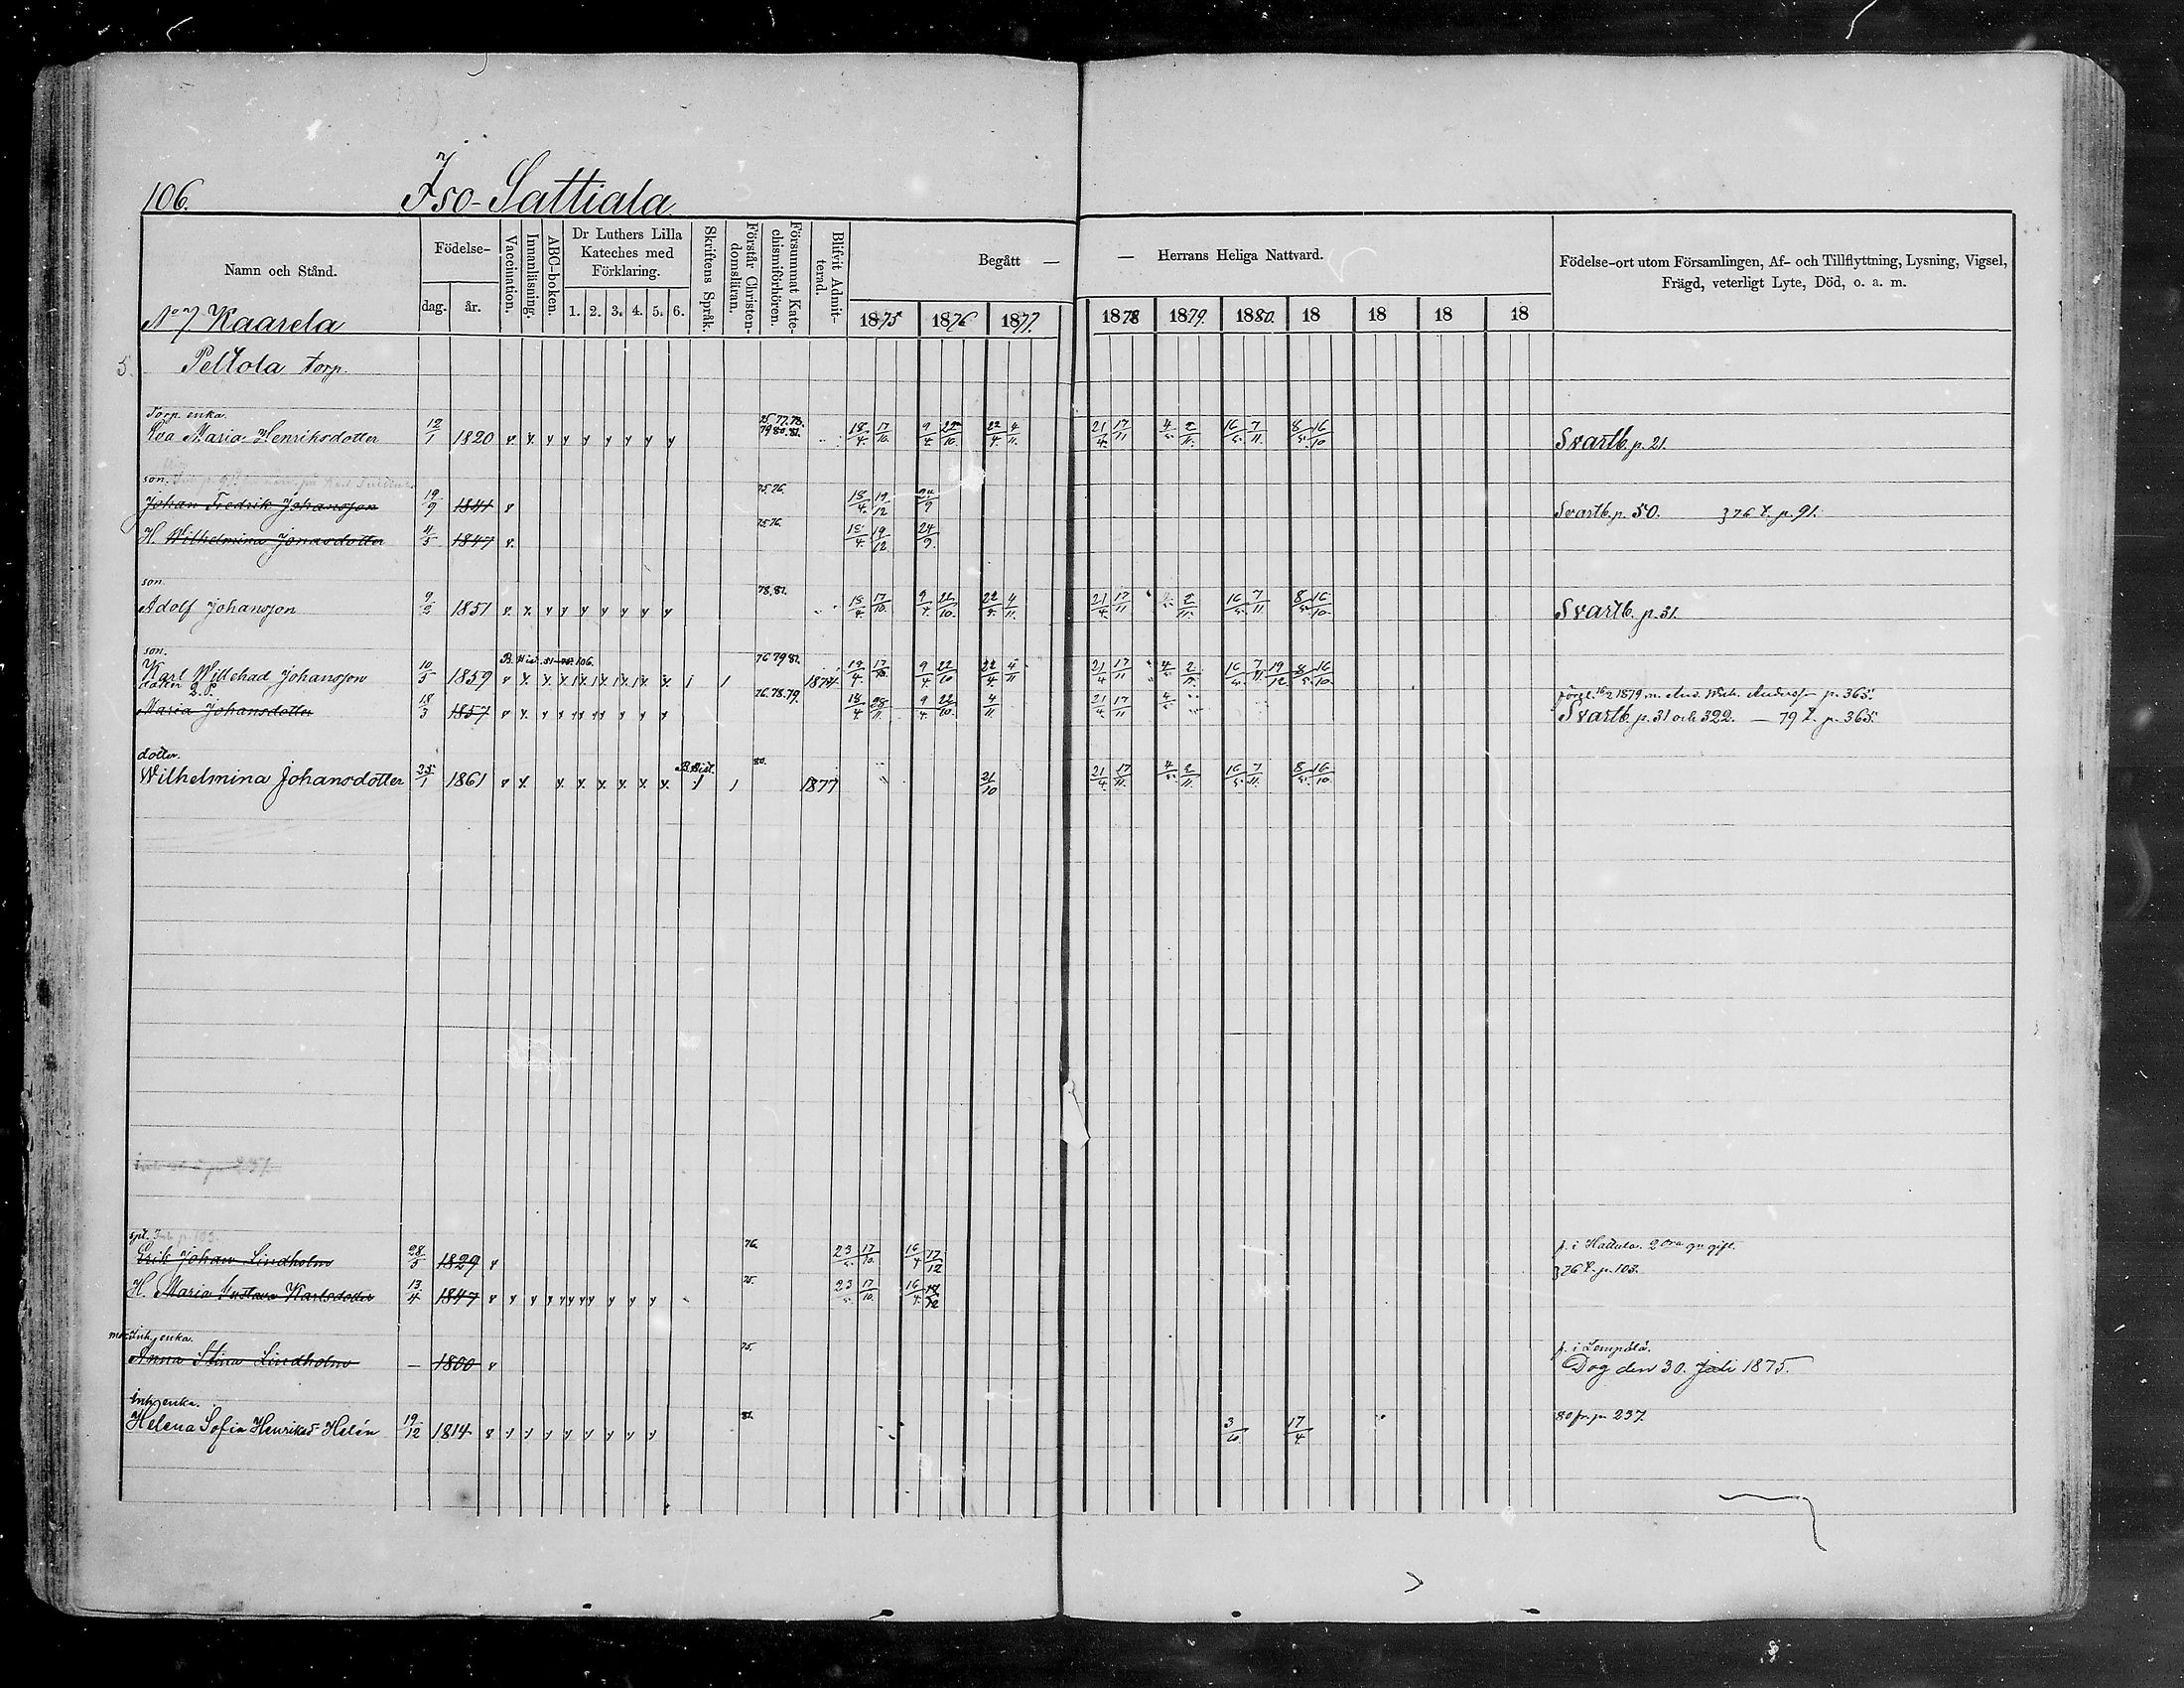 106.
Iso-Sattiala
Namn och Stånd.
Födelse-
dag.
år.
Vaccination.
Innanläsning.
ABC-boken.
Dr Luthers Lilla
Kateches med
Förklaring.
1. 2. 3. 4. 5. 6.
Skriftens Språk.
Förstår Christen-
domsläran.
Försummat Kate-
chismiförhören.
Blifvit Admit-
terad.
Begått —
— Herrans Heliga Nattvard.
1875 1876 1877. 1878 1879. 1880. 18 18 18 18
Födelse-ort utom Församlingen, Af- och Tillflyttning, Lysning, Vigsel,
Frägd, veterligt Lyte, Död, o. a. m.
No 7 Kaarela
5. Peltola torp
Torp. enka.
Eva Maria Henriksdotter 12/1 1820 75.77.78. 79 80. 81. 18/4 17/10 9/4 22/10 22/4 4/11 21/4 17/11 4/5 2/11 16/5 7/11 8/5 16/10 Svartb. p. 21.
son.
Johan Fredrik Johansson 19/9 1841 75.76. 18/4 19/12 24/9 Svartb. p. 50. } 76 t. p. 91.
H. Wilhelmina Jonasdotter 4/5 1847 75.76. 18/4 19/12 24/9
son.
Adolf Johansson 9/2 1851 78.81. 18/4 17/10 9/4 22/10 22/4 4/11 21/4 17/11 2/11 16/5 7/11 8/5 16/10 Svartb. p. 31.
son.
Karl Willehad Johansson 10/5 1859 76 79 81. 1874 18/4 17/10 9/4 22/10 22/4 4/11 21/4 17/11 4/5 2/11 16/5 7/11 19/12 8/5 16/10
Maria Johansdotter 18/3 1857 76.78.79. 18/4 28/11 9/4 22/10 4/11 21/4 17/11 4/5 Svartb. p. 31 och 322. — 79 t. p. 365.
dotter.
Wilhelmina Johansdotter 25/1 1861 B. Hist. 80. 1877 21/10 21/4 17/11 4/5 2/11 16/5 7/11 8/5 16/10
Erik Johan Lindholm 28/5 1829 76. 23/5 17/10 16/4 17/12 f. i Hattula. 2 dra gg gift.
H. Maria Gustava Karlsdoter 13/4 1847 75. 23/5 17/10 16/4 17/12 } 76 t. p. 103.
Inh. enka.
Anna Stina Lindholm — 1800 75. f. i Lempälä.
Dog den 30. Juli 1875.
Inh. enka.
Helena Sofia Henriksd Helén 19/12 1814 81. 3/10 17/4 80 fr. p. 237.